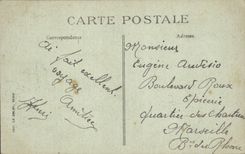 CARTE POSTALE
Correspondance
Ai fait excellent
voyage
Amitiés
Monsieur
Eugène
Boulevard Roux
Epicerie
Quartier des Chartreux
Marseille
B. du Rhône